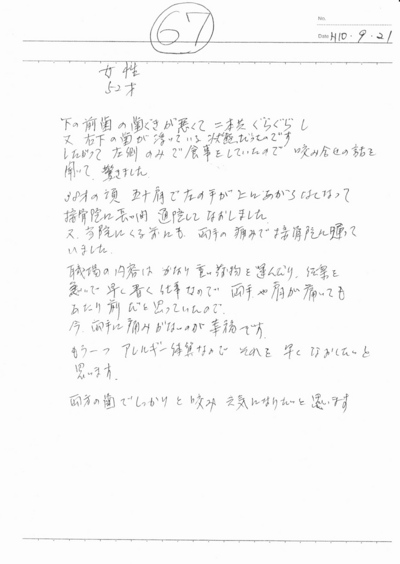 67
No.
Date H10・9・21
女性
52才
下の前歯の歯ぐきが悪くて 二本共 ぐらぐらし
又 右下の歯が浮いている 状態だそうです
したがって 左側 のみで 食事をしていたので 咬み合せの話を
聞いて、驚きました。
38才の頃 五十肩で左の手が上にあがらなくなって
接骨院に長い間 通院してなおしました。
又、当院にくる前にも、両手の痛みで接骨院に通って
いました。
職場の内容は かなり重い荷物を運んだり、伝票を
急いで 早く書く仕事なので 両手や肩が痛いても
あたり前 だと思っていたので、
今、両手に痛みがないのが幸福です。
もう一つ アレルギー体質なので それも 早く なおしたいと
思います。
両方の歯でしっかりと咬み 元気になりたいと思います